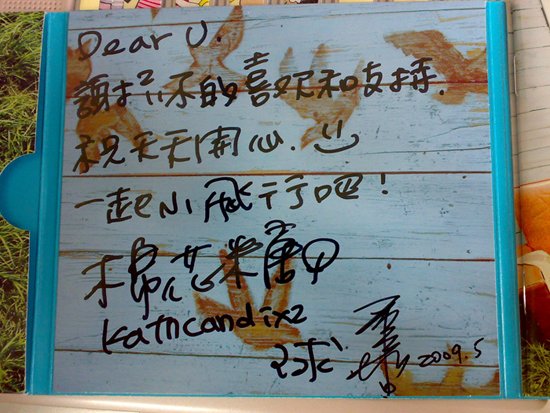 Dear U.
謝謝你的喜歡和支持.
祝天天開心.
一起飛行吧!
棉花糖
katncandix2
球 2009.5